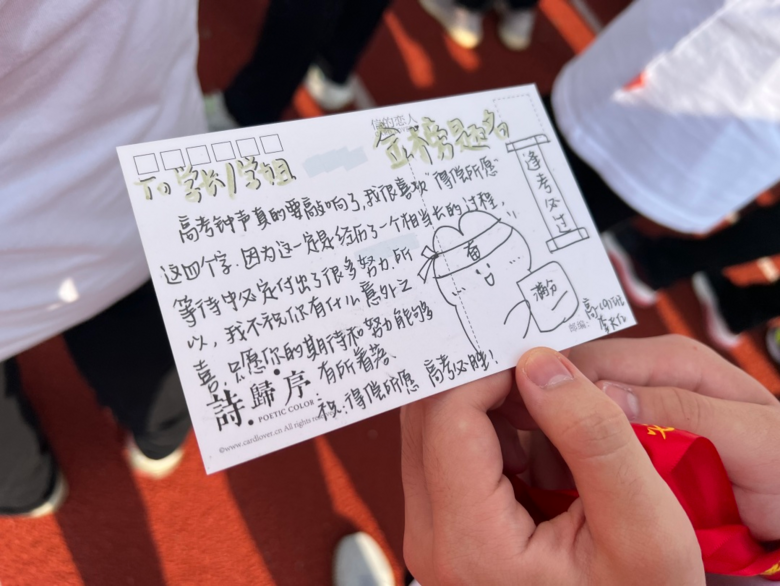 信的恋人
To 学长/学姐
金榜题名
高考钟声真的要敲响了,我很喜欢"得偿所愿"
这四个字.因为这一定是经历了一个相当长的过程,
等待中必定付出了很多努力.所
以,我不祝你有什么意外之
喜,只愿你的期待和努力能够
有所着落.
祝:得偿所愿 高考必胜!
逢考必过
奋
满分
邮编:
詩.歸序.
POETIC COLOR
©www.cardlover.cn All rights